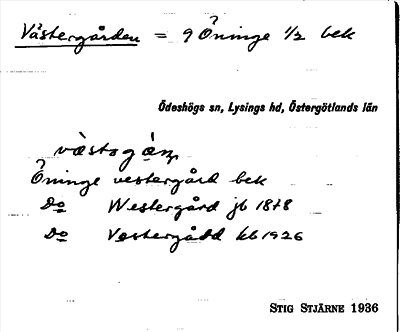 Västergården = 9 Öninge 1/2 bek
Ödeshögs sn, Lysings hd, Östergötlands län
Öninge vestergård bek
Do Westergård jb 1878
Do Vestergård kb 1926
STIG STJÄRNE 1936